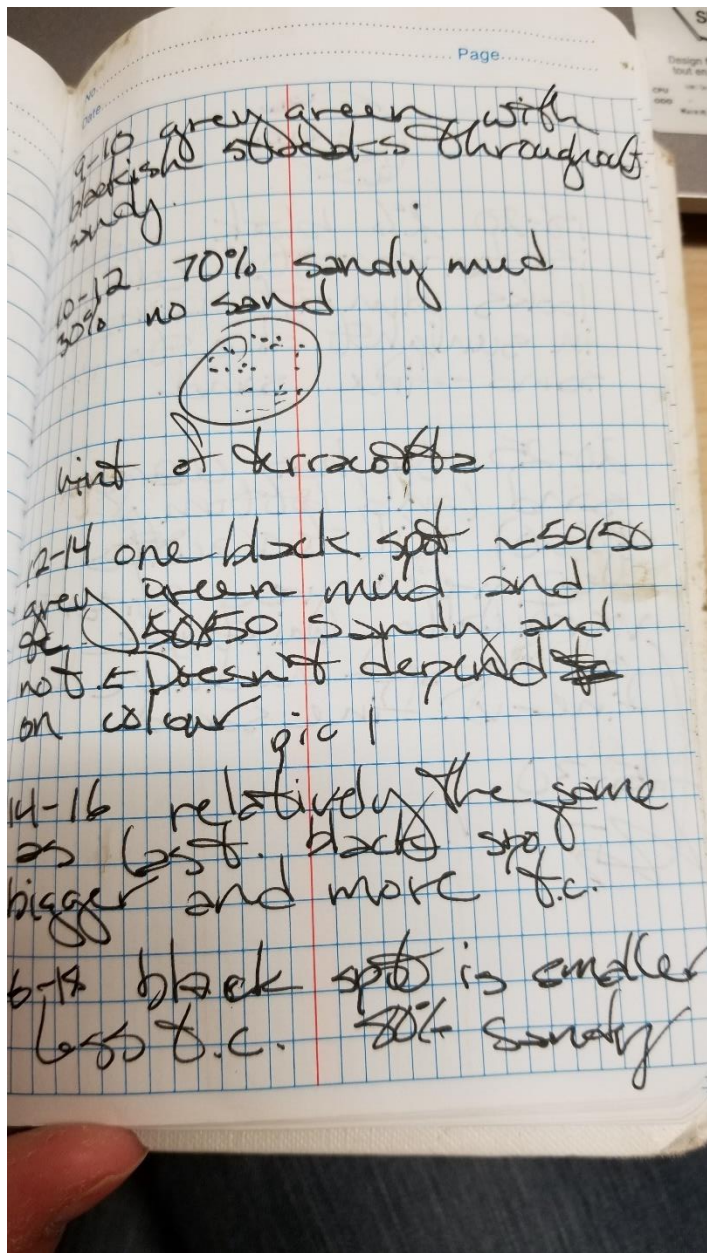 Page
No.
Date
9-10 grey green with
blackish throughout
sandy.
10-12 70% sandy mud
30% no sand
hint of terracotta
12-14 one black spot ~50/50
grey green mud and
50/50 sandy and
not. Doesn't depend
on colour pic 1
14-16 relatively the same
as last. black spot
bigger and more t.c.
6-18 black spot is smaller
Less t.c. 80% sandy
Design
tout en